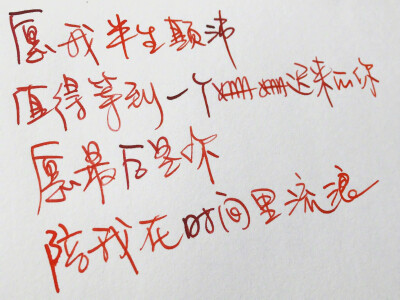 愿我半生颠沛
值得等到一个迟来的你
愿最后是你
陪我在时间里流浪